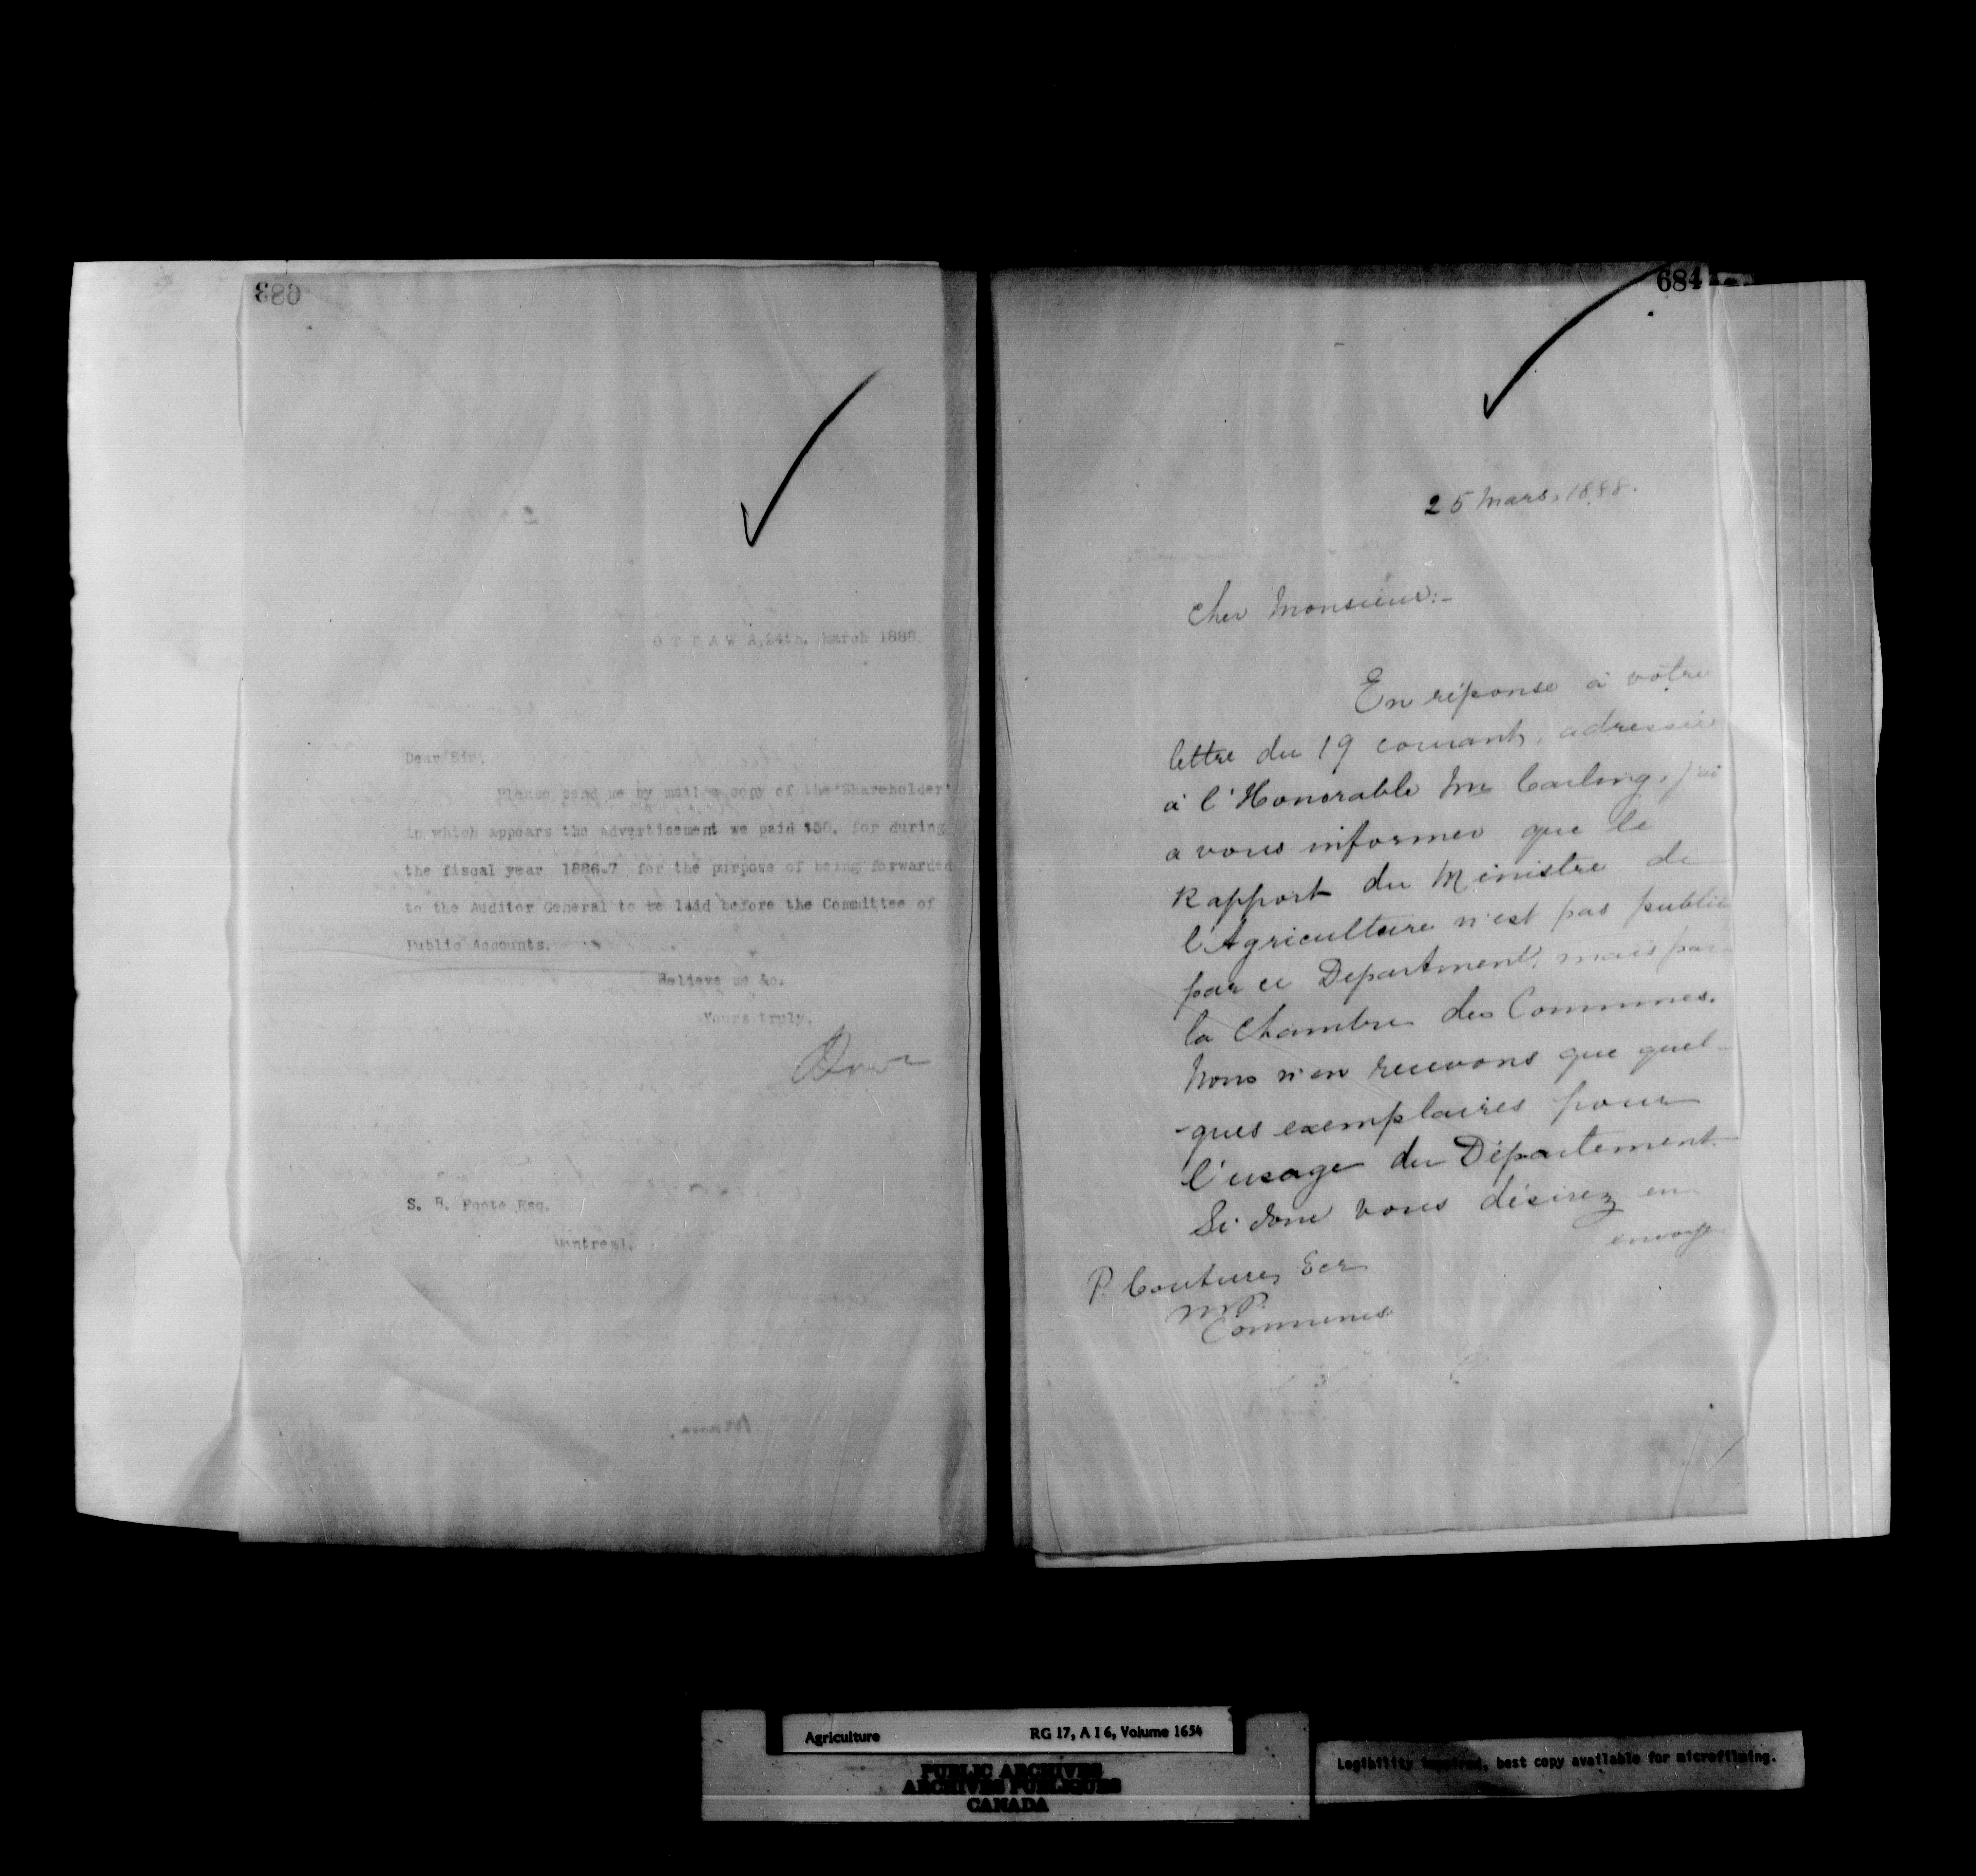 683
OTTAWA, 24th. March 1888
Dear Sir,
Please send me by mail a copy of the "Shareholder"
in which appears the advertisement we paid $50. for during
the fiscal year 1886-7 for the purpose of being forwarded
to the Auditor General to be laid before the Committee of
Public Accounts.
Believe me &c.
Yours truly,
S. B. Foote Esq.
Montreal.
684
25 Mars, 1888.
Cher Monsieur:-
En réponse à votre
lettre du 19 courant, adressée
à l'Honorable Mr Carling, j'ai
a vous informer que le
Rapport du Ministre de
l'Agriculture n'est pas publié
par ce Department, mais par
la Chambre des Communes.
Nous n'en recevons que quel-
-ques exemplaires pour
l'usage du Département.
Si donc vous désirez en
envoyer
P. Couture, Ecr
M.P.
Communes
Agriculture RG 17, A I 6, Volume 1654
PUBLIC ARCHIVES
ARCHIVES PUBLIQUES
CANADA
Legibility impaired, best copy available for microfilming.